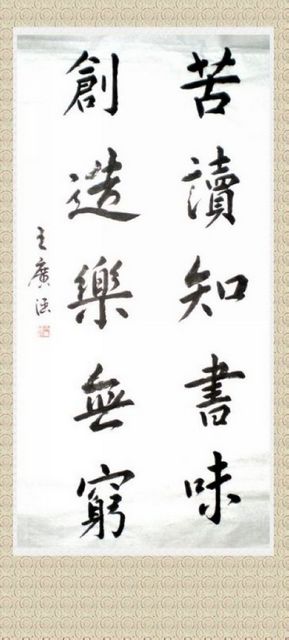 苦讀知書味
創造樂無窮
王廣德